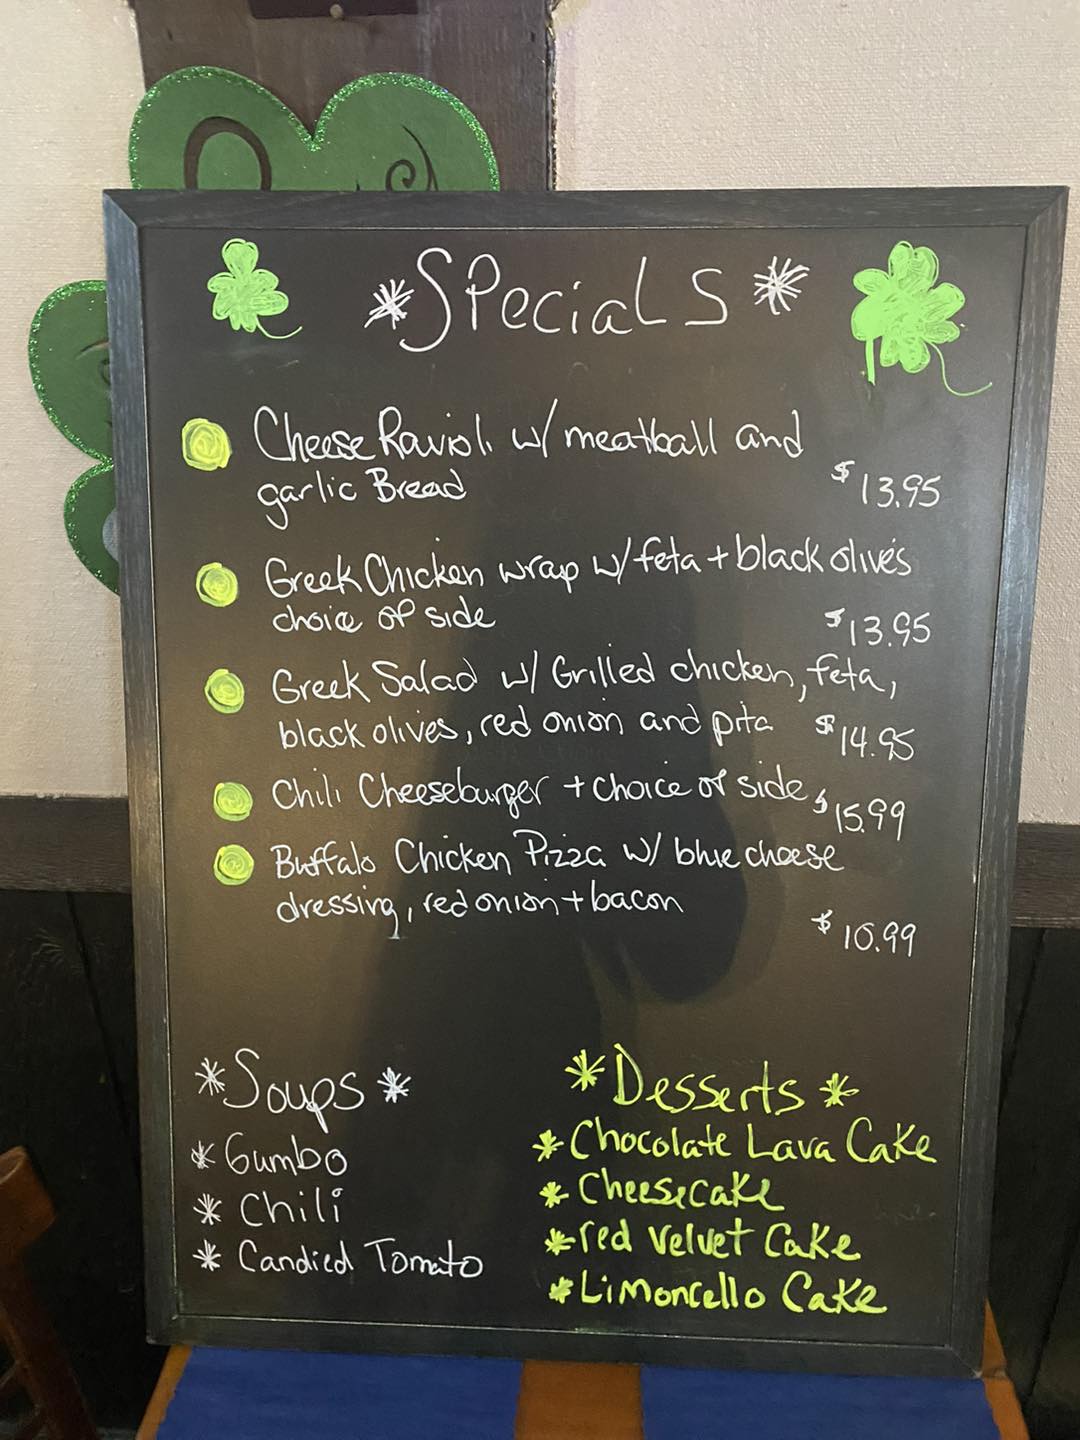 *Specials*
Cheese Ravioli w/ meatball and
garlic Bread $13.95
Greek Chicken wrap w/ feta + black olives
choice of side $13.95
Greek Salad w/ Grilled chicken, feta,
black olives, red onion and pita $14.95
Chili Cheeseburger + choice of side $15.99
Buffalo Chicken Pizza w/ blue cheese
dressing, red onion + bacon
$10.99
*Soups*
* Gumbo
* Chili
* Candied Tomato
*Desserts*
* Chocolate Lava Cake
* Cheesecake
* red velvet Cake
* Limoncello Cake